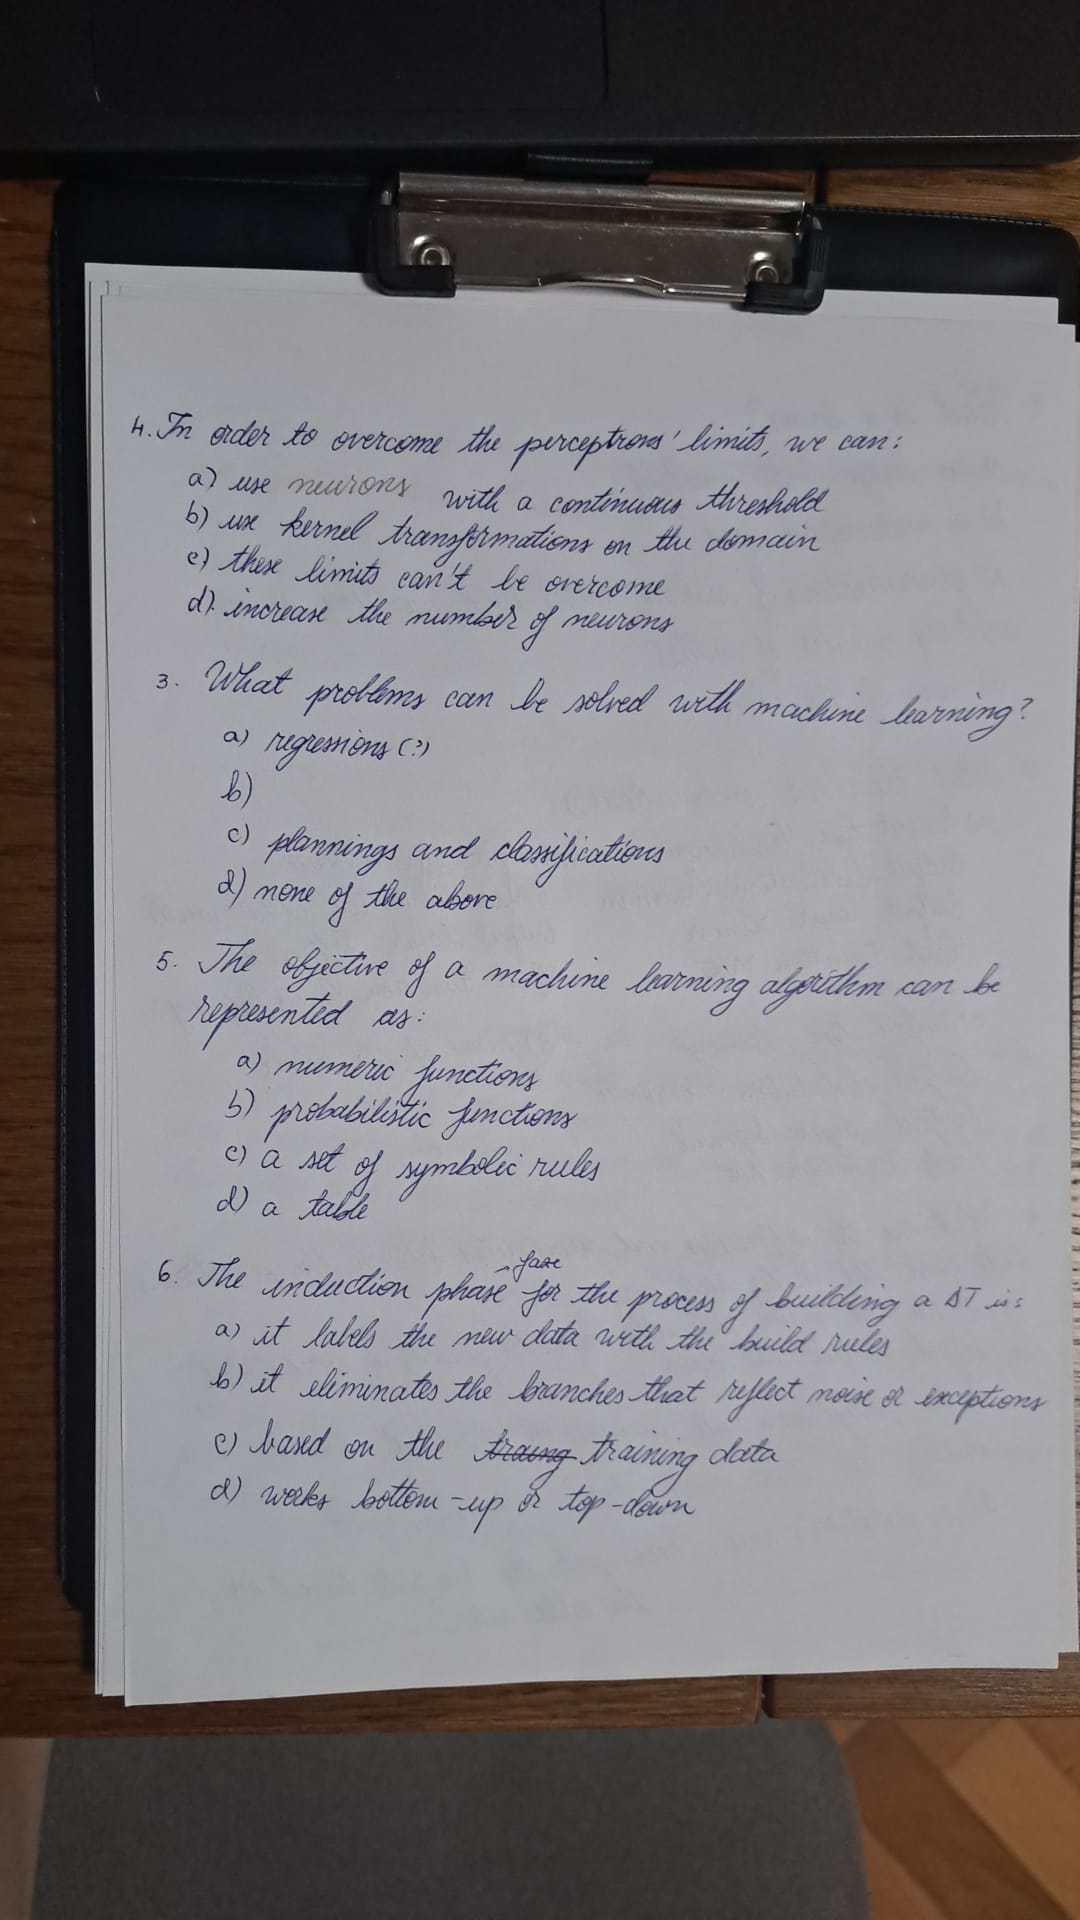 4. In order to overcome the perceptrons' limits, we can:
a) use neurons with a continuous threshold
b) use kernel transformations on the domain
c) these limits can't be overcome
d) increase the number of neurons
3. What problems can be solved with machine learning?
a) regressions (?)
b)
c) plannings and classifications
d) none of the above
5. The objective of a machine learning algorithm can be
represented as:
a) numeric functions
b) probabilistic functions
c) a set of symbolic rules
d) a table
faze
6. The induction phase for the process of building a ΔT is:
a) it labels the new data with the build rules
b) it eliminates the branches that reflect noise or exceptions
c) based on the traing training data
d) works bottom-up or top-down